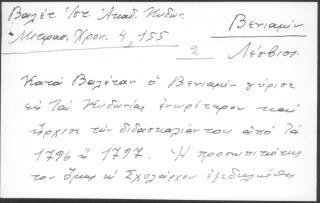 Βαλέτ. Ἱστ. Ἀκαδ. Κυδων.
Μητρασ. Χρον. 4, 155
Βενιαμὶν
2
Λέσβιος.
Κατὰ Βαλέταν ὁ Βενιαμὶν γύρισε
εἰς τὰς Κυδωνίας ἐνωρίτερον καὶ
ἤρχισε τὴν διδασκαλίαν του ἀπὸ τὰ
1796 ἢ 1797. Ἡ προσωπικότης
του ὅμως ὡς Σχολάρχου ἐξεδηλώθη